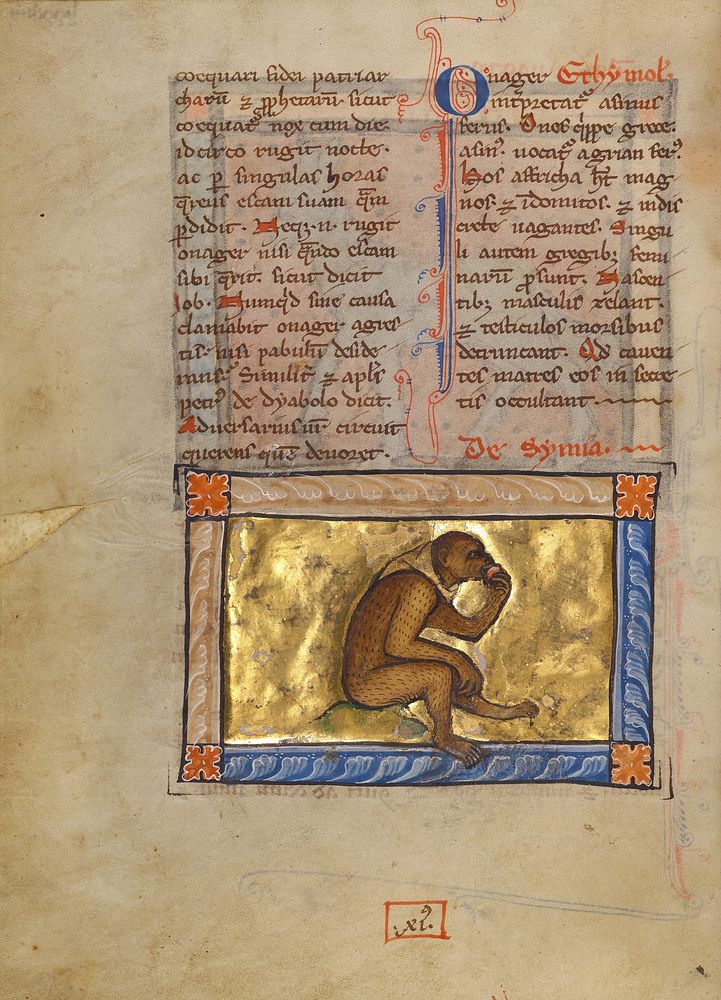 coequari fidei patriar
charū ⁊ ꝓphetarū sicut
coequat᷒ nox cum die
idcirco rugit nocte.
ac ꝑ singulas horas
q̄rens escam suam q̄m
ꝑdidit. Neqꝫ .n. rugit
onager nisi q̄ndo escam
sibi q̄rit. sicut dicit
Iob. Numq̄d sine causa
clamabit onager agres
tis. nisi pabulū deside
rans. Similit᷑ ⁊ apl's
petr᷒ de dyabolo dicit.
Aduersarius ur̄ circuit
querens quē deuoret.
Onager Ethẏmol.
int̄pretat᷑ asinus
ferus. Onos q̄ippe grece.
asin᷒. uocat᷑ agrian fer᷒.
Hos affricha h̄t mag
nos. ⁊ īdomitos. ⁊ in dis
crete uagantes. Singu
li autem gregibꝫ femi
narū p̄sunt. Nascen
tibꝫ masculis zelant.
⁊ testiculos morsibus
detruncant. Qd̄ cauen
tes matres eos in secre
tis occultant.
De Sẏmia.
.xi᷒.